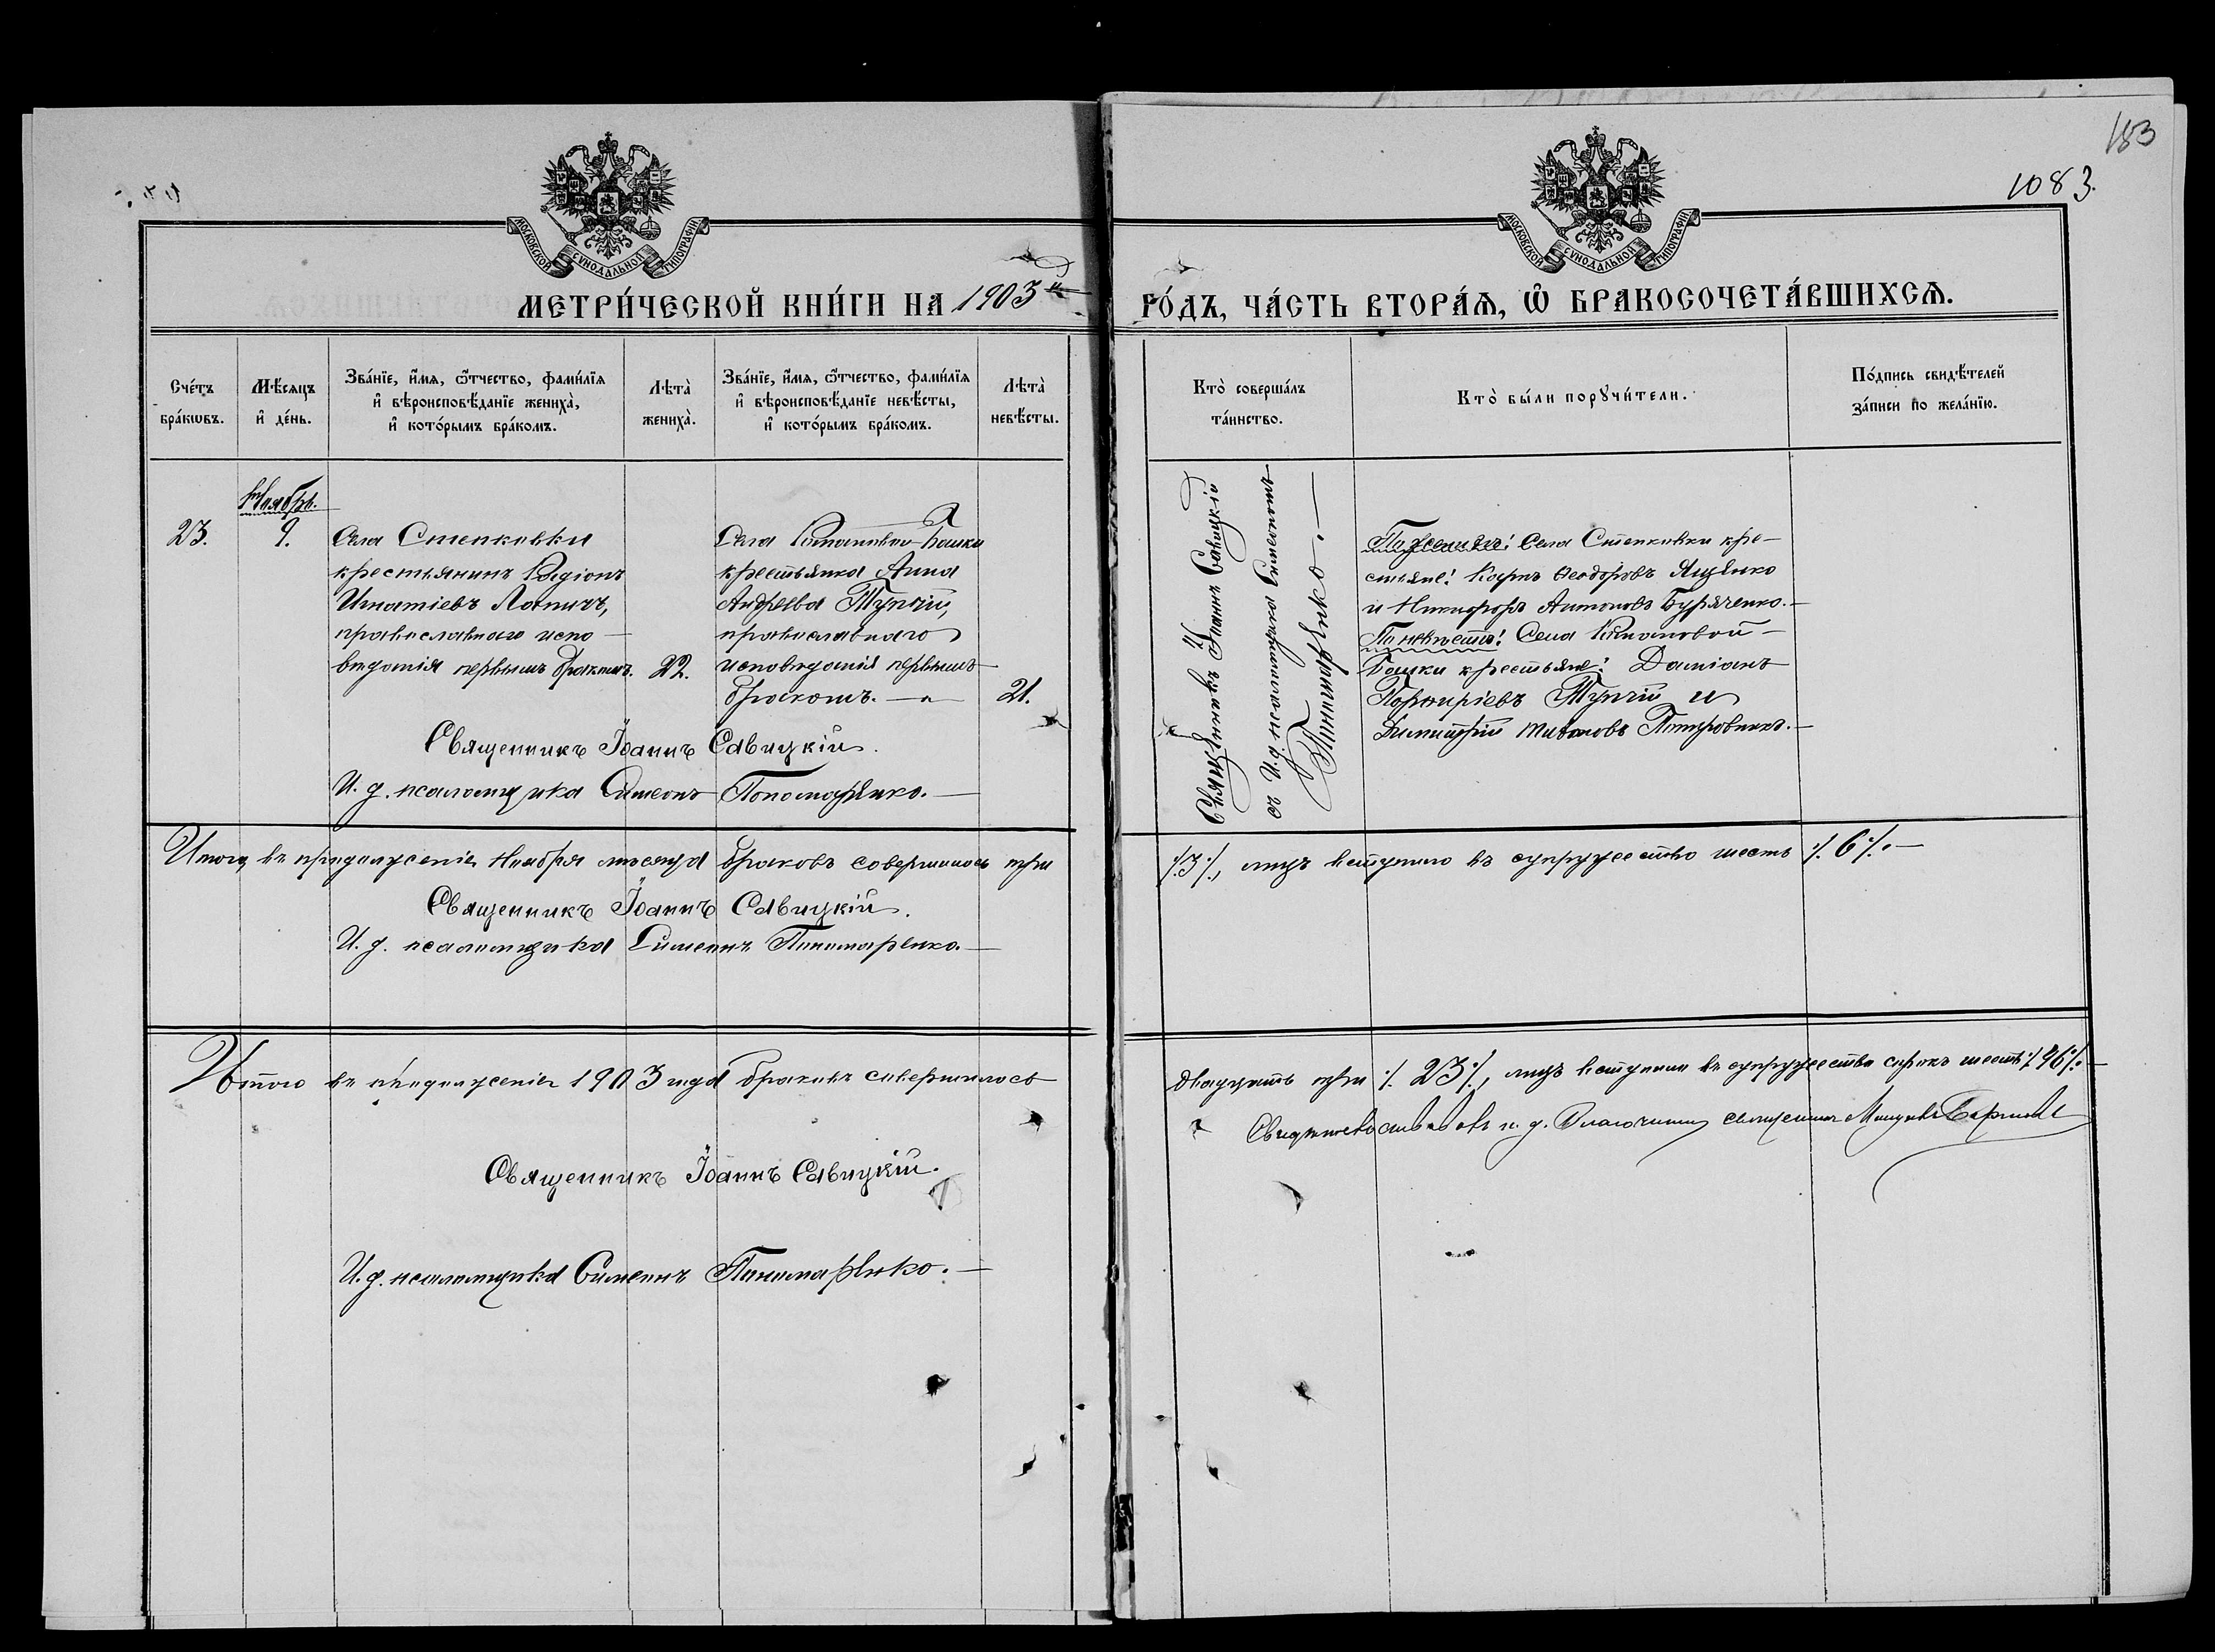 183
1083.
МОСКОВСКОЙ СѴНОДАЛЬНОЙ ТИПОГРАФІИ
МОСКОВСКОЙ СѴНОДАЛЬНОЙ ТИПОГРАФІИ
МЕТРИ́ЧЕСКОЙ КНИ́ГИ НА 1903й
ГО́ДЪ, ЧА́СТЬ ВТОРА́Ѧ, Ѡ҆ БРАКОСОЧЕТА́ВШИХСѦ.
Сче́тъ бра́кѡвъ.
Мѣ́сяцъ и҆ де́нь.
Зва́нїе, и҆́мѧ, ѻ҆́тчество, фами́лїѧ
и҆ вѣроисповѣ́данїе жениха̀,
и҆ кото́рымъ бра́комъ.
Лѣта̀ жениха̀.
Зва́нїе, и҆́мѧ, ѻ҆́тчество, фами́лїѧ
и҆ вѣроисповѣ́данїе невѣ́сты,
и҆ кото́рымъ бра́комъ.
Лѣта̀ невѣ́сты.
Кто̀ соверша́лъ та́инство.
Кто̀ бы́ли порꙋчи́тели.
По́дпись свидѣ́телей за́писи по жела́нїю.
23.
Ноябрь.
9.
Села Степковки
крестьянинъ Родіонъ
Игнатіевъ
православнаго испо-
вѣданія первымъ бракомъ.
22.
Села Романовой-Балки
крестьянка Анна
Андреева Тупчій,
православнаго
исповѣданія первымъ
бракомъ.
21.
Священникъ Іоаннъ Савицкій
съ И. д. псаломщика Симеономъ
Пономаренко.
По женихѣ: Села Степковки кре-
стьяне: Карпъ Ѳеодоровъ Яценко
и Никифоръ Антоновъ Буряченко.
По невѣстѣ: Села Романовой-
Балки крестьяне: Даміанъ
Порфиріевъ Тупчій и
Димитрій
Священникъ Іоаннъ Савицкій.
И. д. псаломщика Симеонъ Пономаренко.
Итого, въ продолженіе Ноября мѣсяца браковъ совершилось три
/.3/., лицъ вступило въ супружество шесть /.6/.
Священникъ Іоаннъ Савицкій.
И. д. псаломщика Симеонъ Пономаренко.
Итого въ продолженіе 1903 года браковъ совершилось
двадцать три /.23/., лицъ вступило въ супружество сорокъ шесть /.46/.
Свидѣтельствовалъ и. д. Благочиннаго священникъ
Священникъ Іоаннъ Савицкій.
И. д. псаломщика Симеонъ Пономаренко.